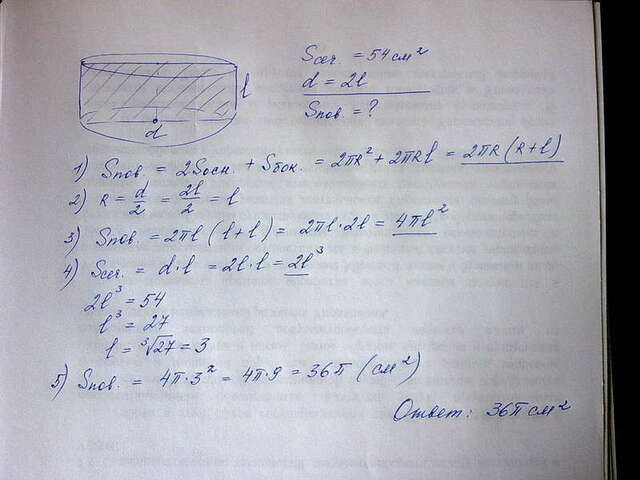 l
d
Sсеч. = 54 см²
d = 2l
Sпов = ?
1) Sпов. = 2Sосн. + Sбок. = 2πR² + 2πRl = 2πR(R+l)
2) R = d/2 = 2l/2 = l
3) Sпов. = 2πl(l+l) = 2πl·2l = 4πl²
4) Sсеч. = d·l = 2l·l = 2l³
2l³ = 54
l³ = 27
l = ³√27 = 3
5) Sпов. = 4π·3² = 4π·9 = 36π (см²)
Ответ: 36π см²